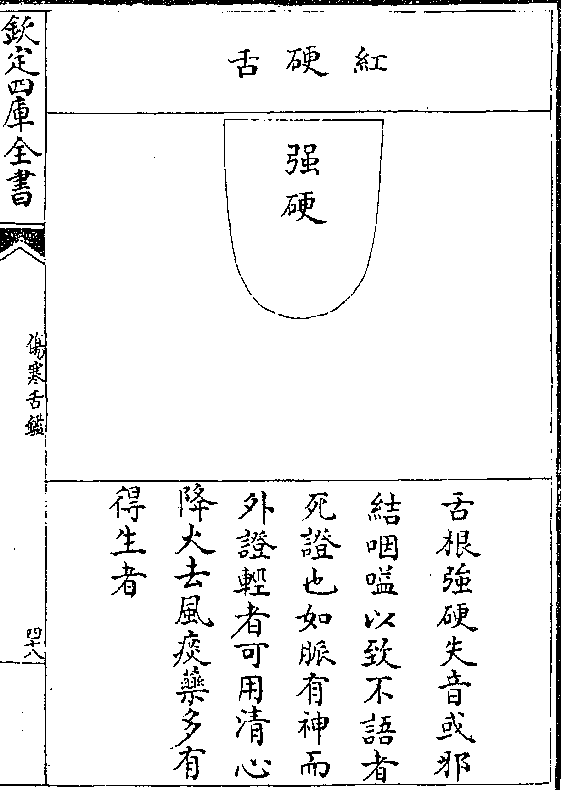 紅硬舌
强硬
舌根強硬失音或邪
結咽嗌以致不語者
死證也如脈有神而
外證輕者可用清心
降火去風痰藥多有
得生者
欽定四庫全書
傷寒舌鑑